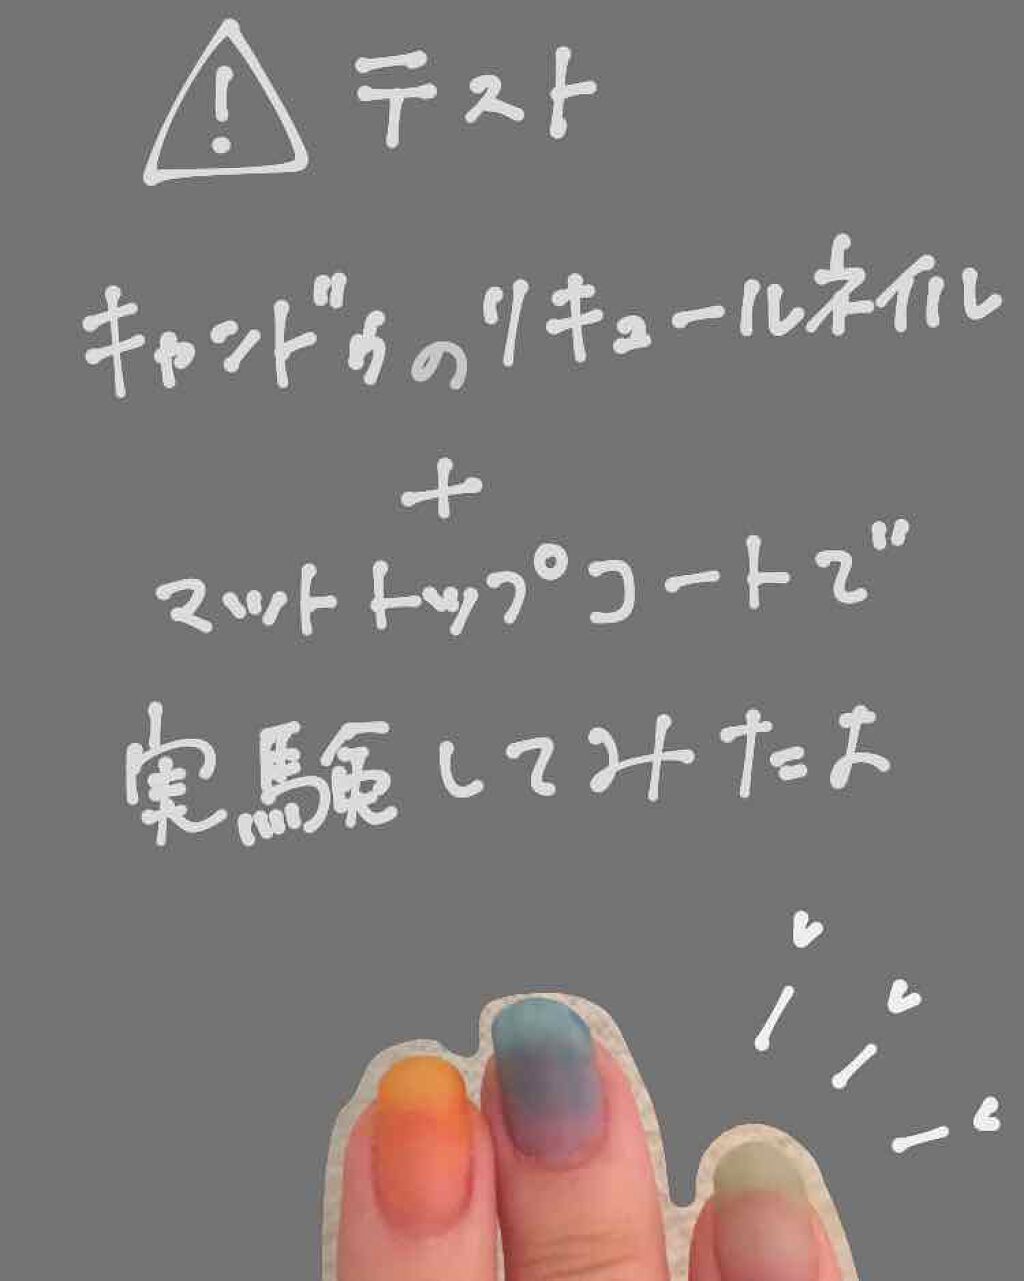 テスト
キャンドゥのリキュールネイル
+
マットトップコートで
実験してみたよ